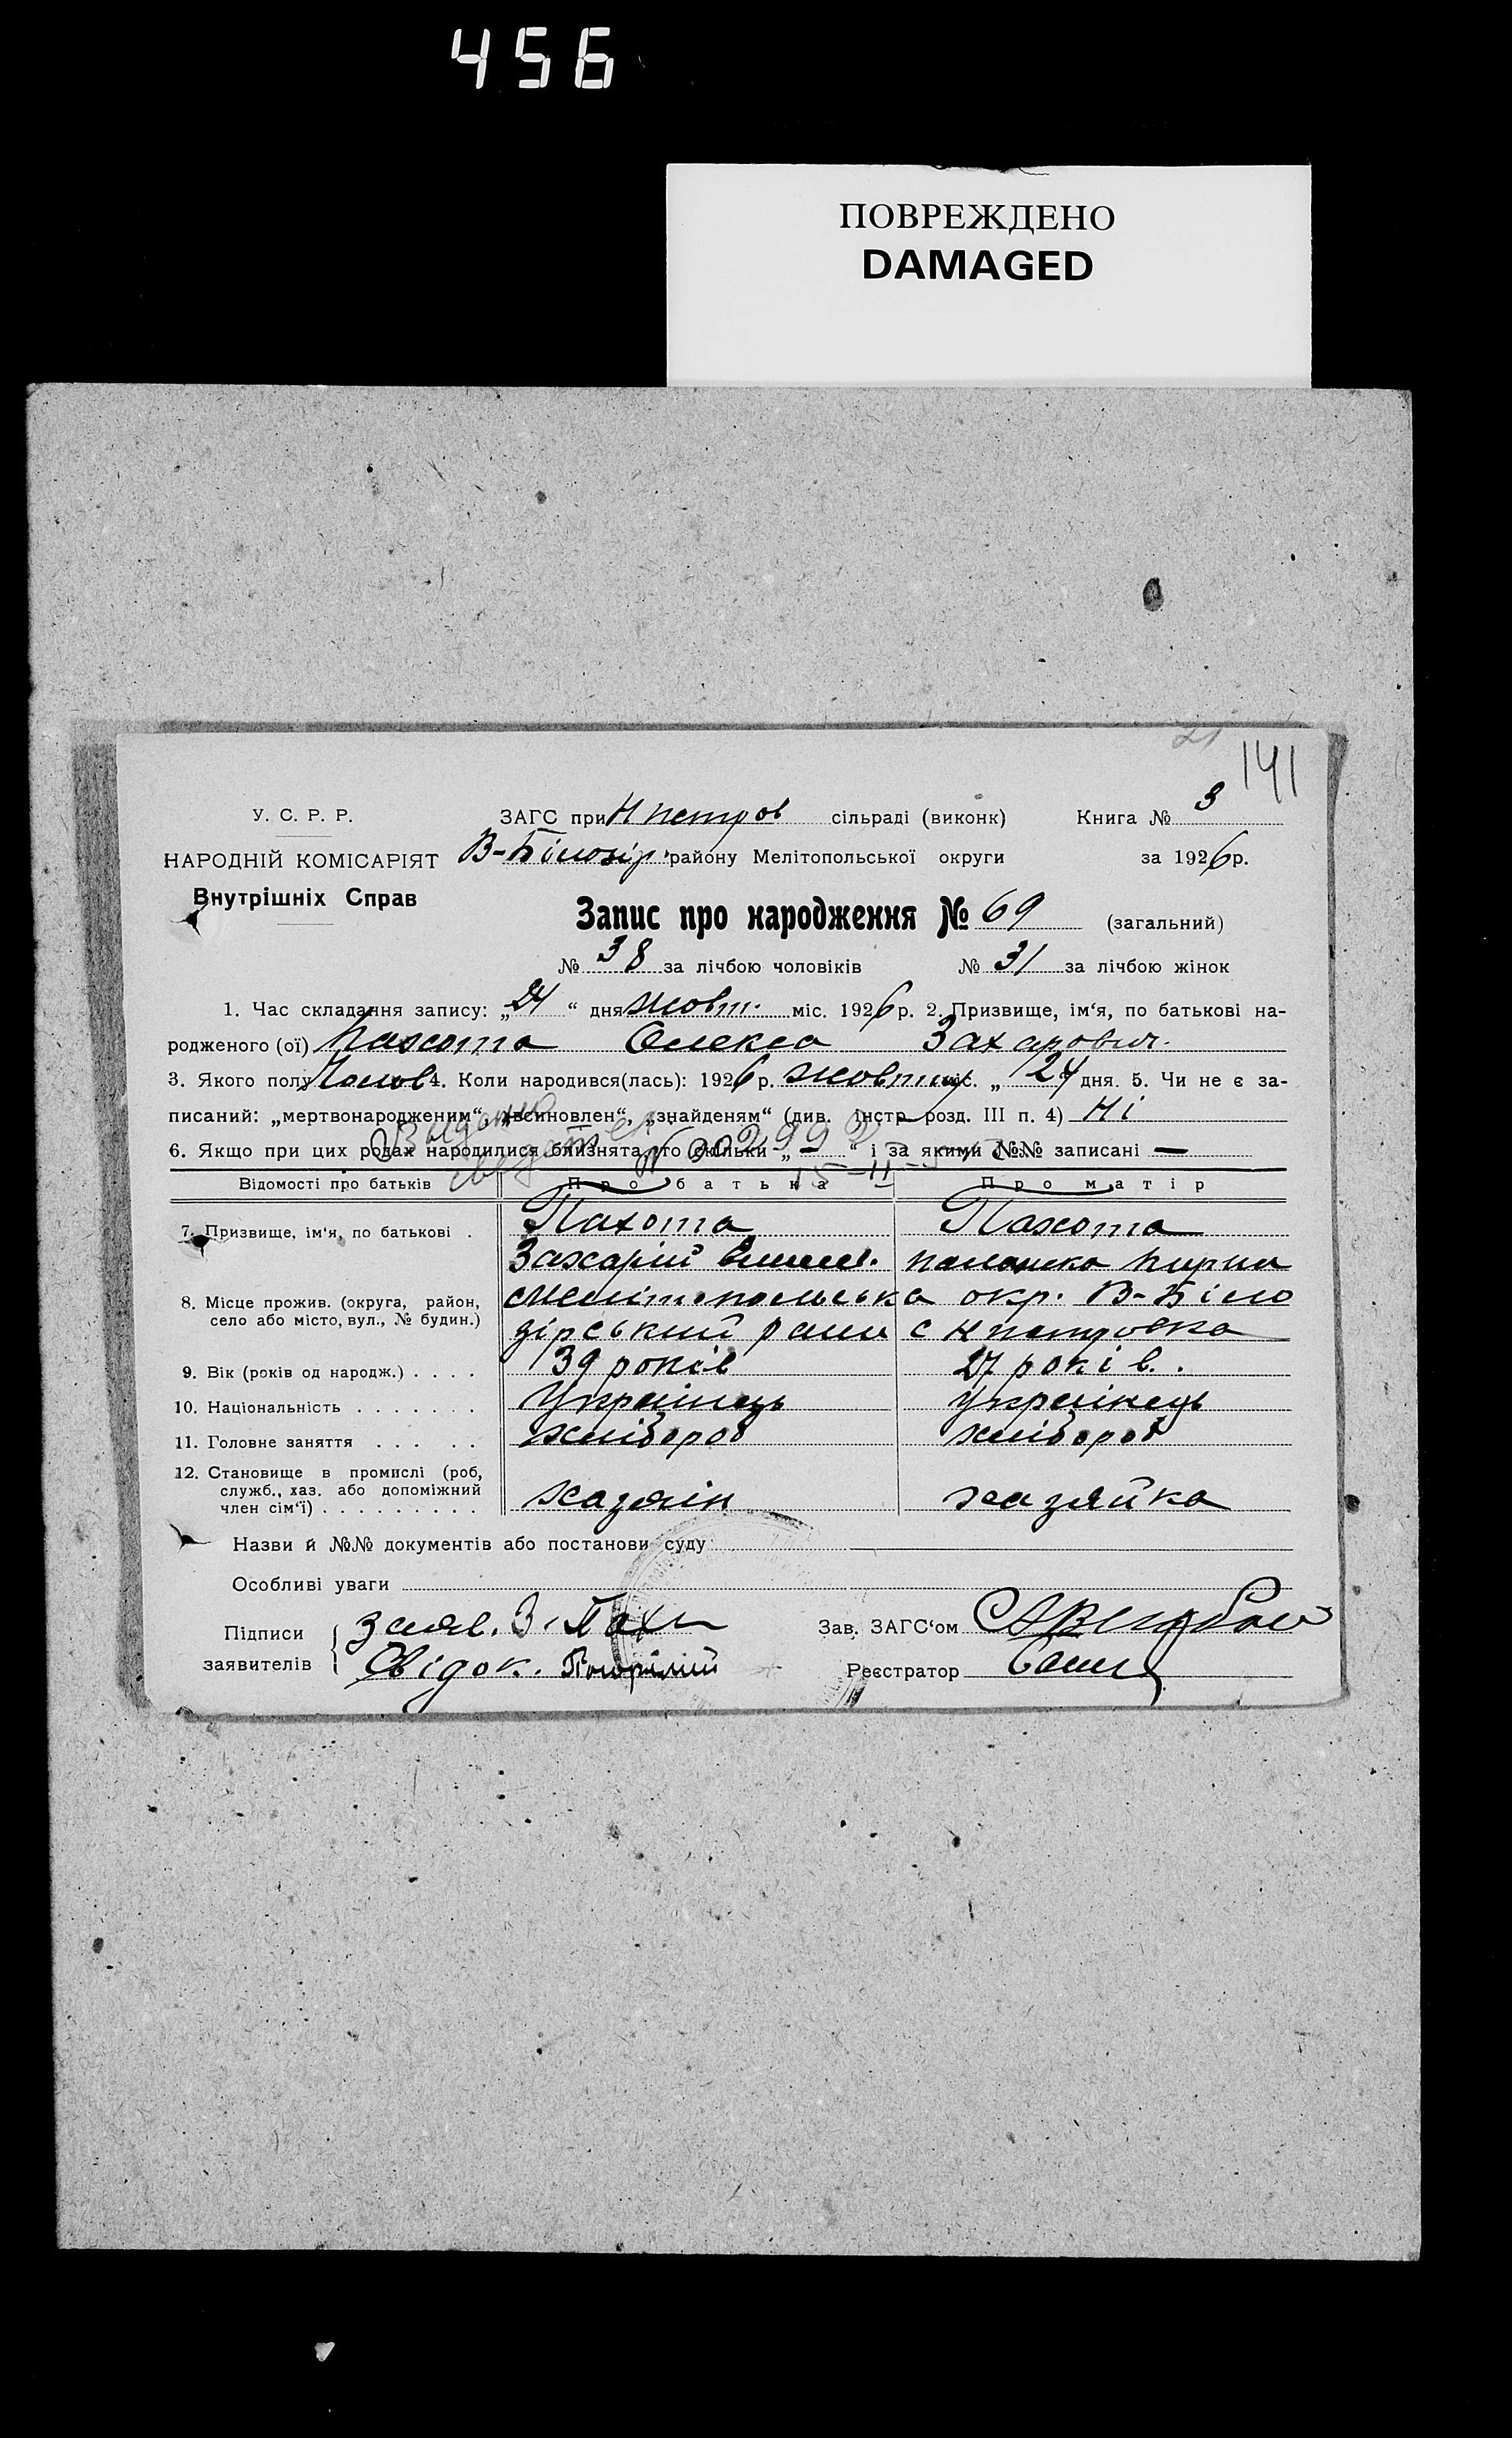 456
ПОВРЕЖДЕНО
DAMAGED
21
141
У. С. Р. Р. ЗАГС при Н петров сільраді (виконк) Книга № 3
НАРОДНІЙ КОМІСАРІЯТ В-Білозір. району Мелітопольської округи за 1926 р.
Внутрішніх Справ
Запис про народження № 69 (загальний)
№ 38 за лічбою чоловіків № 31 за лічбою жінок
1. Час складання запису: „24“ дня жовт. міс. 1926 р. 2. Призвище, ім‘я, по батькові на-
родженого (ої) Пахота Олекса Захарович.
3. Якого полу Чолов 4. Коли народився(лась): 1926 р. жовтня міс. „ 24 дня. 5. Чи не є за-
писаний: „мертвонародженим“, „всиновлен“, „знайденям“ (див. інстр розд. III п. 4) Ні
Выдано
6. Якщо при цих родах народилися близнята, то скільки „ — “ і за якими №№ записані —
Відомості про батьків Про батька Про матір
7. Призвище, ім‘я, по батькові . Пахота Пахота
Захарій палашка
8. Місце прожив. (округа, район, мелітопольська окр. В-Біло
село або місто, вул., № будин.) зірський с Н петровка
9. Вік (років од народж.) . . . . 39 років 27 років.
10. Національність . . . . . . . Українець Українець
11. Головне заняття . . . . . хлібороб хлібороб
12. Становище в промислі (роб,
служб., хаз. або допоміжний
член сім‘ї) . . . . . . . . . хазяїн хазяйка
Назви й №№ документів або постанови суду
Особливі уваги
Підписи заявителів { заяв. З. Зав. ЗАГС‘ом
Свідок. Реєстратор